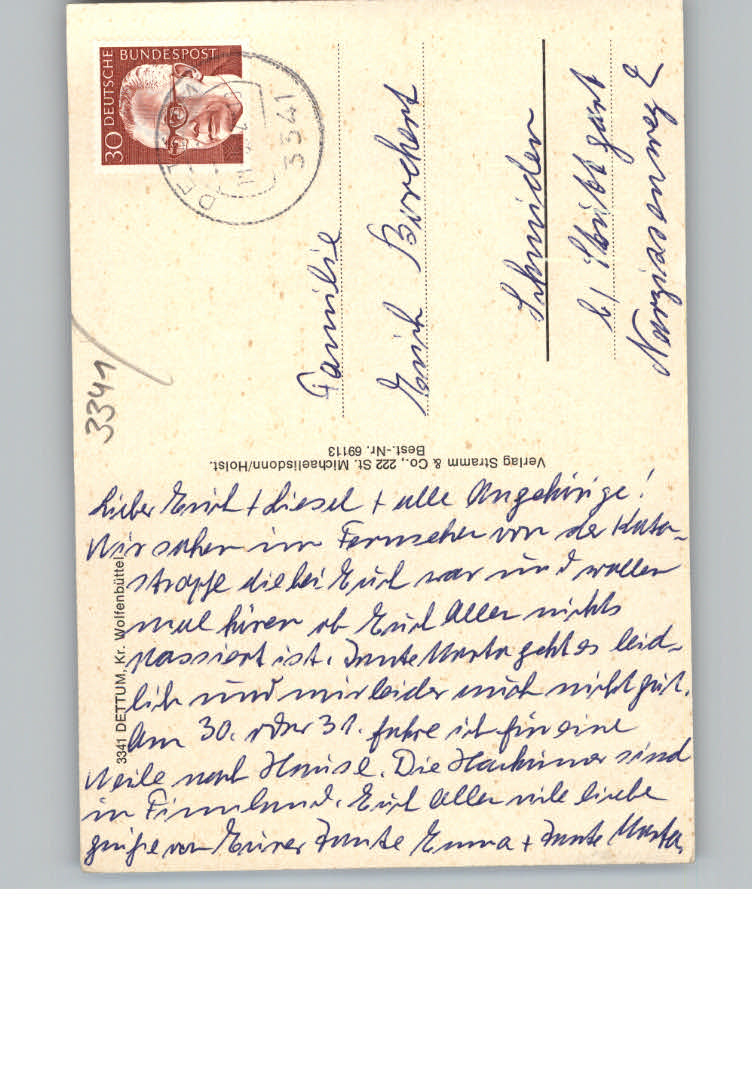 DEUTSCHE BUNDESPOST
30
3341
3341
Familie
Erich Borchert
Schmiden
b/ Stuttgart
Narzissenweg 2
Verlag Stramm & Co., 222 St. Michaelisdonn/Holst.
Best.-Nr. 69113
3341 DETTUM, Kr. Wolfenbüttel
Lieber Erich + Liesel + alle Angehörige!
Wir sahen im Fernseher von der Kata-
strophe die bei Euch war und wollen
mal hören ob Euch Allen nichts
passiert ist. Tante Marta geht es leid-
lich und mir leider auch nicht gut.
Am 30. oder 31. fahre ich für eine
Weile nach Hause. Die sind
in Finnland. Euch Allen viele liebe
Grüße von Eurer Tante Emma + Tante Marta.